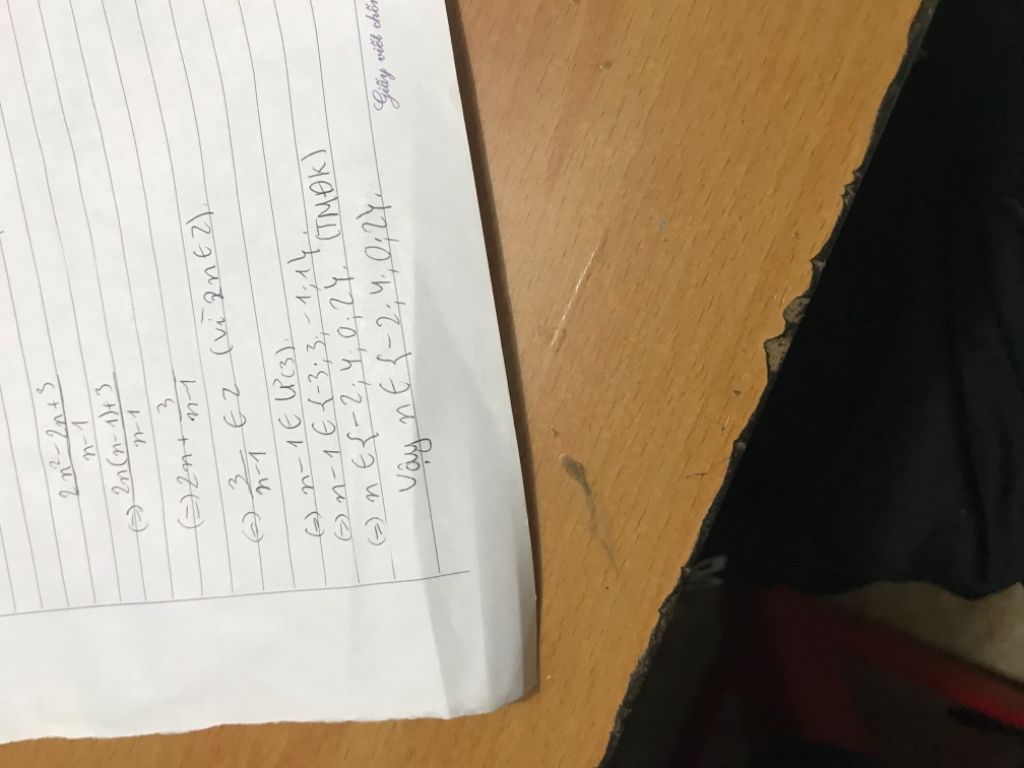 2n²-2n+3
n-1
(=) 2n(n-1)+3
n-1
(=) 2n + 3
n-1
(=) 3 ∈ Z (vì 2n ∈ Z).
n-1
(=) n-1 ∈ Ư(3).
(=) n-1 ∈ {-3; 3; -1; 1}.
(=) n ∈ {-2; 4; 0; 2}. (TMĐK)
Vậy n ∈ {-2; 4; 0; 2}.
Giấy viết chốn